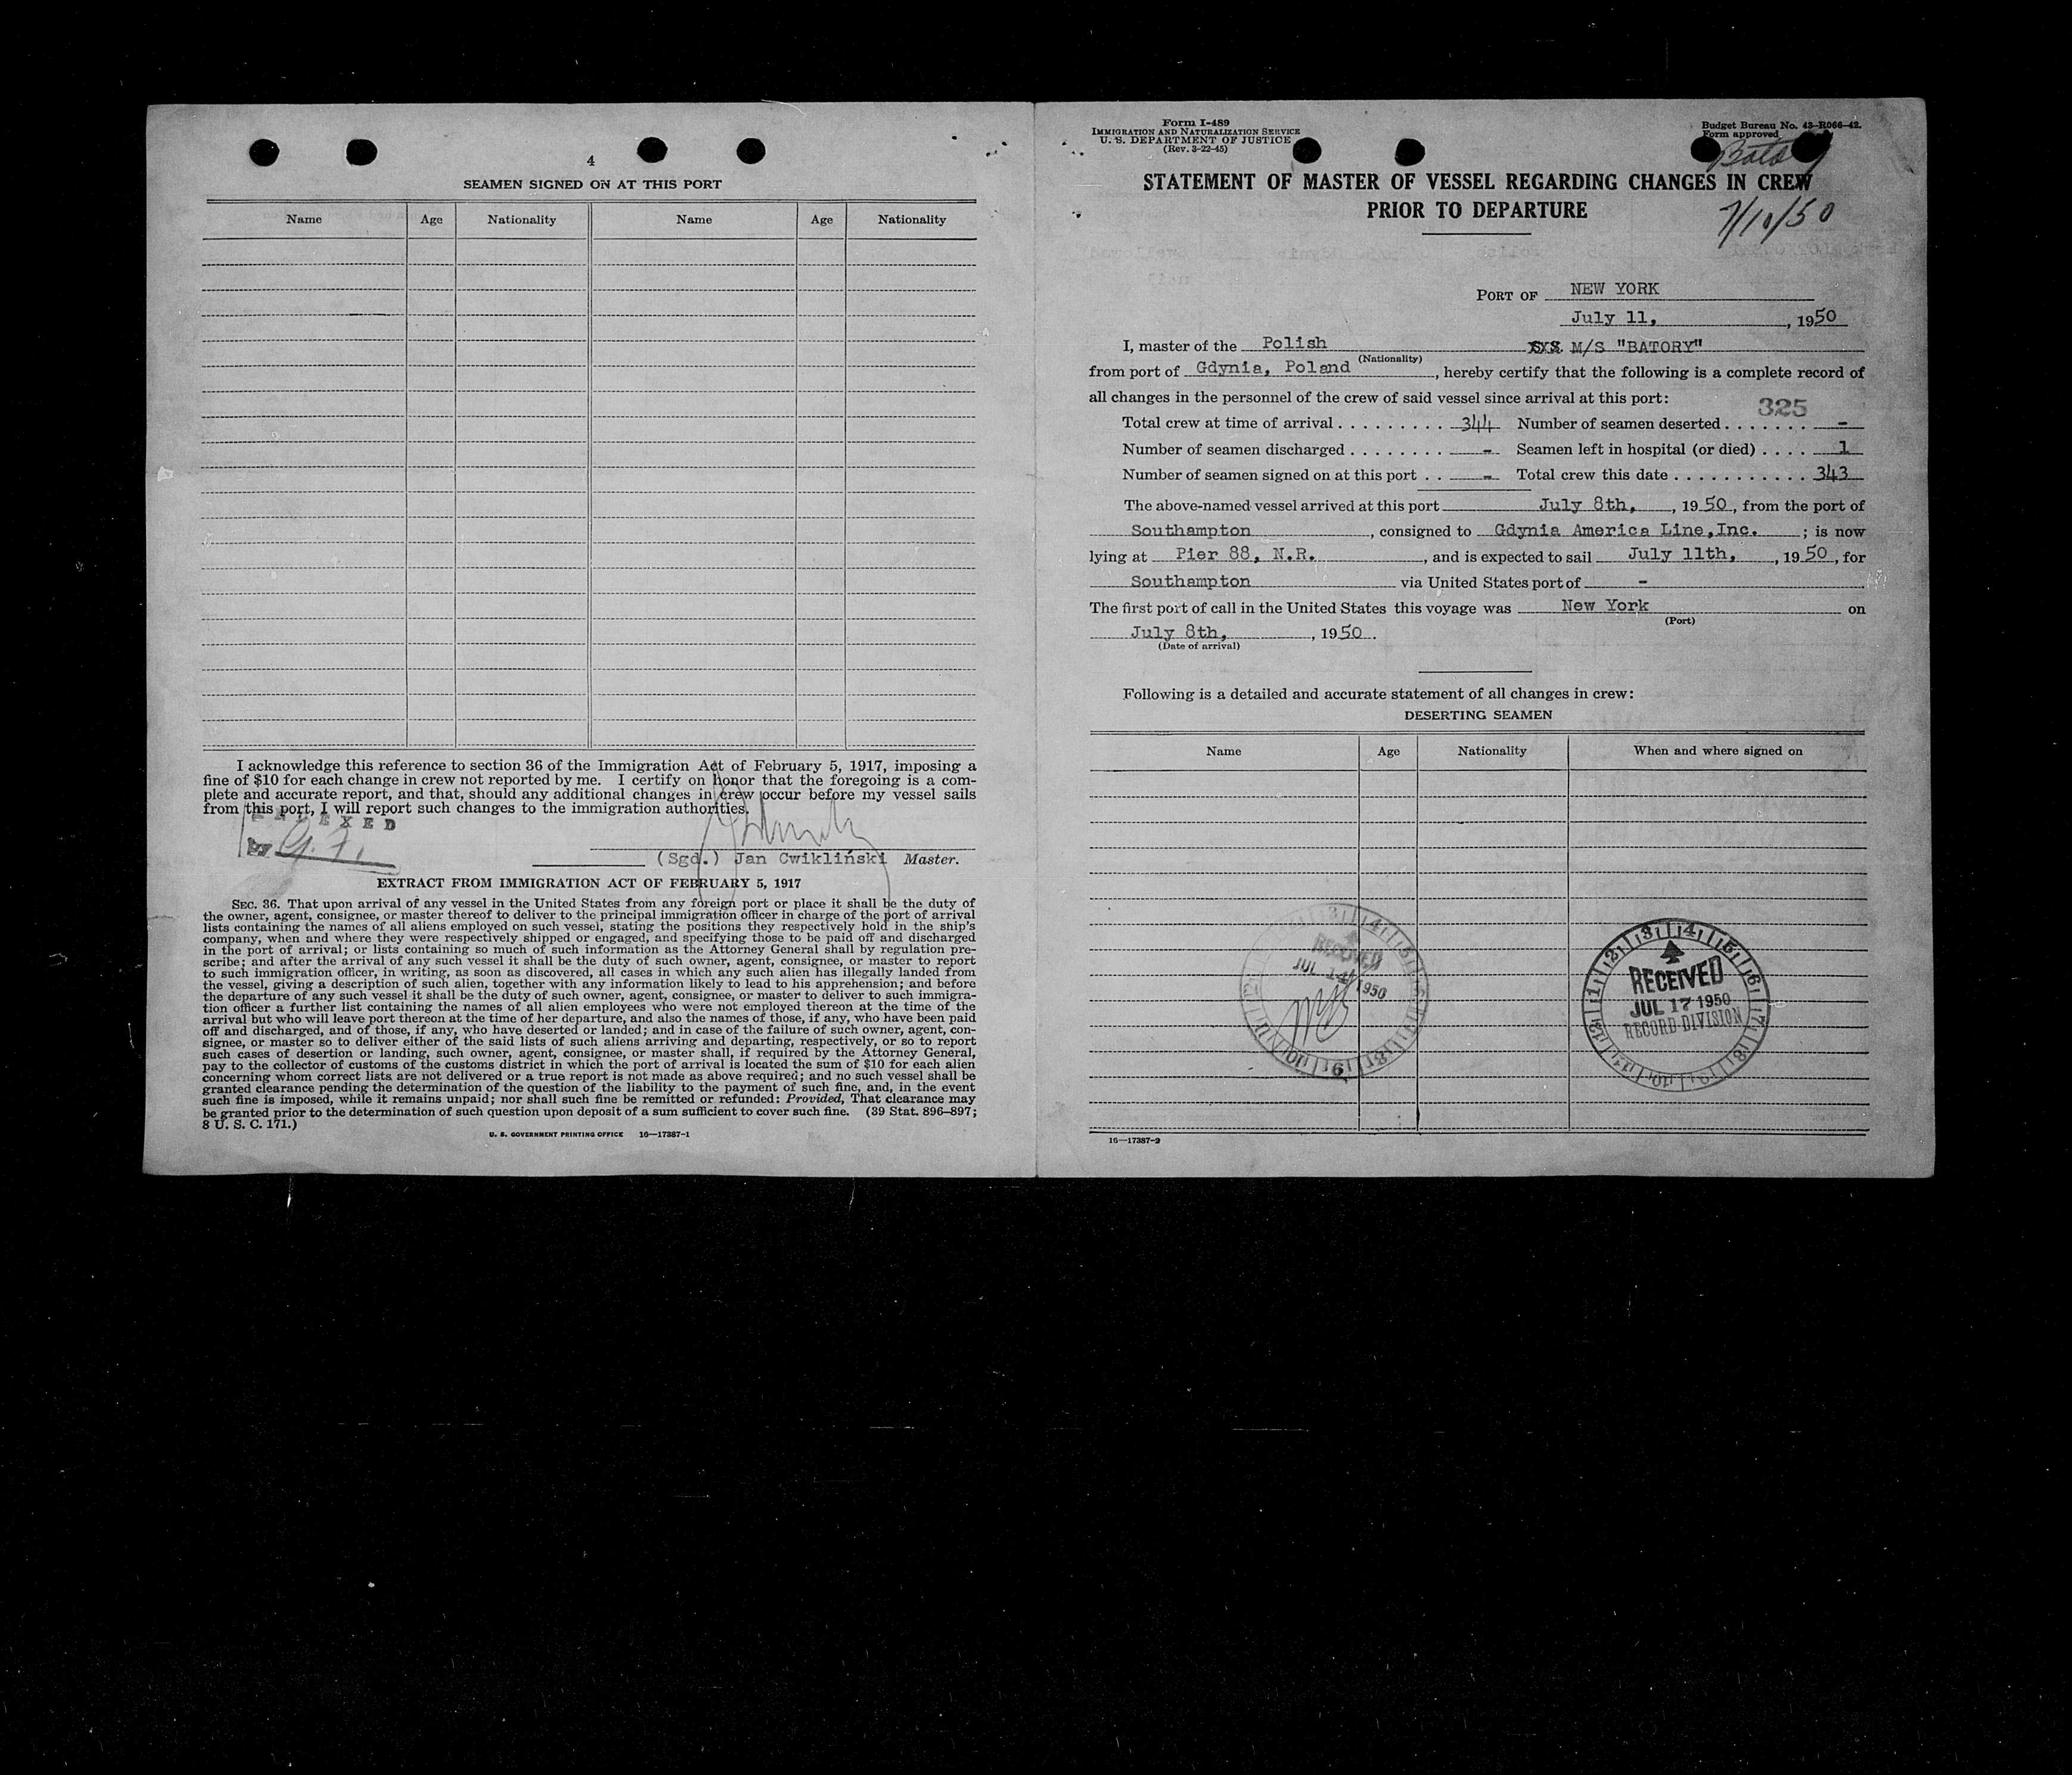 4
SEAMEN SIGNED ON AT THIS PORT
Name Age Nationality Name Age Nationality
I acknowledge this reference to section 36 of the Immigration Act of February 5, 1917, imposing a
fine of $10 for each change in crew not reported by me. I certify on honor that the foregoing is a com-
plete and accurate report, and that, should any additional changes in crew occur before my vessel sails
from this port, I will report such changes to the immigration authorities.
INDEXED
by G. F.
(Sgd.) Jan Cwikliński Master.
EXTRACT FROM IMMIGRATION ACT OF FEBRUARY 5, 1917
SEC. 36. That upon arrival of any vessel in the United States from any foreign port or place it shall be the duty of
the owner, agent, consignee, or master thereof to deliver to the principal immigration officer in charge of the port of arrival
lists containing the names of all aliens employed on such vessel, stating the positions they respectively hold in the ship's
company, when and where they were respectively shipped or engaged, and specifying those to be paid off and discharged
in the port of arrival; or lists containing so much of such information as the Attorney General shall by regulation pre-
scribe; and after the arrival of any such vessel it shall be the duty of such owner, agent, consignee, or master to report
to such immigration officer, in writing, as soon as discovered, all cases in which any such alien has illegally landed from
the vessel, giving a description of such alien, together with any information likely to lead to his apprehension; and before
the departure of any such vessel it shall be the duty of such owner, agent, consignee, or master to deliver to such immigra-
tion officer a further list containing the names of all alien employees who were not employed thereon at the time of the
arrival but who will leave port thereon at the time of her departure, and also the names of those, if any, who have been paid
off and discharged, and of those, if any, who have deserted or landed; and in case of the failure of such owner, agent, con-
signee, or master so to deliver either of the said lists of such aliens arriving and departing, respectively, or so to report
such cases of desertion or landing, such owner, agent, consignee, or master shall, if required by the Attorney General,
pay to the collector of customs of the customs district in which the port of arrival is located the sum of $10 for each alien
concerning whom correct lists are not delivered or a true report is not made as above required; and no such vessel shall be
granted clearance pending the determination of the question of the liability to the payment of such fine, and, in the event
such fine is imposed, while it remains unpaid; nor shall such fine be remitted or refunded: Provided, That clearance may
be granted prior to the determination of such question upon deposit of a sum sufficient to cover such fine. (39 Stat. 896–897;
8 U. S. C. 171.)
U. S. GOVERNMENT PRINTING OFFICE 16—17387-1
Form I-489
IMMIGRATION AND NATURALIZATION SERVICE
U. S. DEPARTMENT OF JUSTICE
(Rev. 3-22-45)
Budget Bureau No. 43-R066-42.
Form approved
Batory
STATEMENT OF MASTER OF VESSEL REGARDING CHANGES IN CREW
PRIOR TO DEPARTURE
7/10/50
PORT OF NEW YORK
July 11, , 1950
I, master of the Polish M/S "BATORY"
(Nationality)
from port of Gdynia, Poland , hereby certify that the following is a complete record of
all changes in the personnel of the crew of said vessel since arrival at this port:
325
Total crew at time of arrival . . . . . . . . . 344 Number of seamen deserted . . . . . . . -
Number of seamen discharged . . . . . . . . - Seamen left in hospital (or died) . . . . 1
Number of seamen signed on at this port . . - Total crew this date . . . . . . . . . . . 343
The above-named vessel arrived at this port July 8th, , 1950, from the port of
Southampton , consigned to Gdynia America Line,Inc. ; is now
lying at Pier 88, N.R. , and is expected to sail July 11th, , 1950, for
Southampton via United States port of -
The first port of call in the United States this voyage was New York on
(Port)
July 8th, , 1950.
(Date of arrival)
Following is a detailed and accurate statement of all changes in crew:
DESERTING SEAMEN
Name Age Nationality When and where signed on
RECEIVED
JUL 14 1950
RECEIVED
JUL 17 1950
RECORD DIVISION
16—17387-2